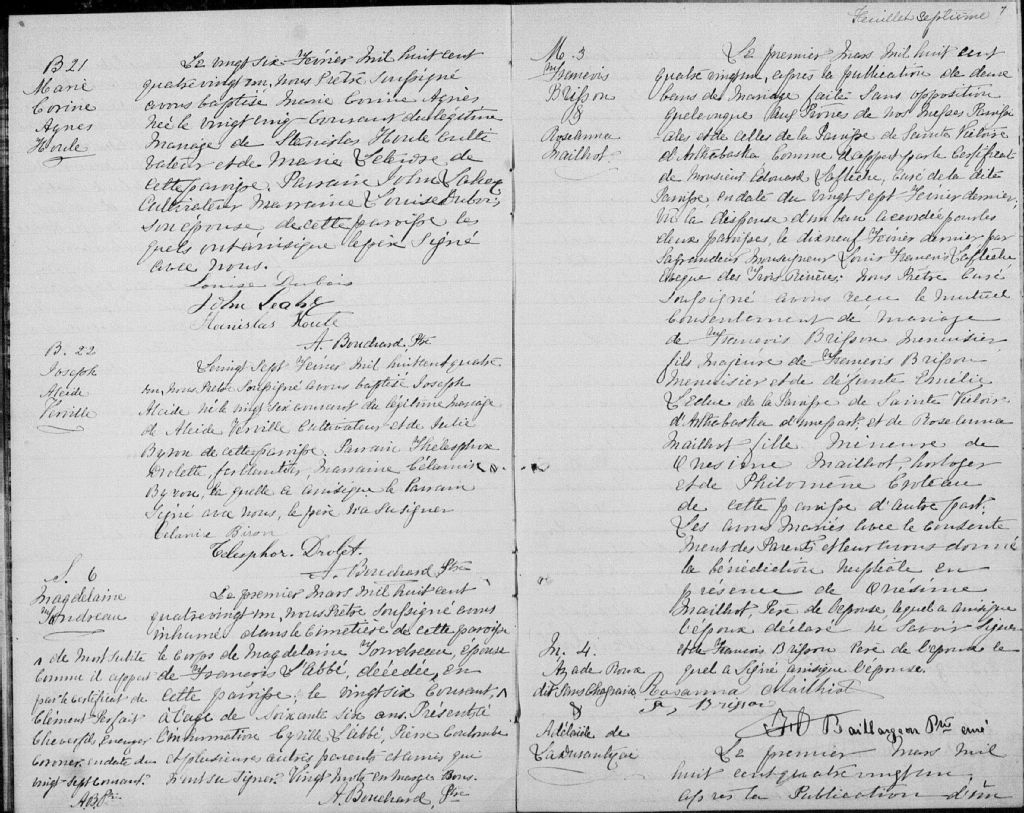 B 21
Marie
Corine
Agnes
Houle
Le vingt six Février mil huit cent
quatre vingt un, nous Prêtre Soussigné
avons baptisé Marie Corine Agnès
née le vingt cinq courant du légitime
mariage de Stanislas Houle culti
vateur et de Marie
cette paroisse. Parrain John Leahey
Cultivateur Marraine Louise Dubois
son épouse de cette paroisse les
quels ont ainsi que le père signé
avec nous.
Louise Dubois
John Leahy
Stanislas Houle
A. Bouchard Ptre
B. 22
Joseph
Alcide
Verville
Le vingt Sept Février mil huit cent quatre
un, nous Prêtre Soussigné avons baptisé Joseph
Alcide né le vingt six courant du légitime mariage
de Alcide Verville Cultivateur et de Julie
Byron de cette paroisse. Parrain Thélesphore
Drolette, marraine Célanire
Byron, la quelle a ainsi que le Parrain
Signé avec nous, le père n'a su signer
Celanire Biron
Télésphor. Drolet.
A. Bouchard Ptre
S. 6
Magdelaine
Le premier Mars mil huit cent
quatre vingt un, nous Prêtre Soussigné avons
inhumé dans le Cimetière de cette paroisse
^ de Mort Subite
comme il appert
par le certificat de
Clément
Coroner en date du
vingt-sept courant.
A.B. Ptre
le corps de Magdelaine épouse
de François L'Abbé, décédée, en
cette paroisse, le vingt six courant, ^
à l'age de Soixante six ans. Présents à
l'inhumation Cyrille L'abbé, Pierre Coulombe
et plusieurs autres parents et amis qui
n'ont su signer. Vingt mots en marge bons.
A. Bouchard, Ptre
Feuillet septième 7
M. 3
François
Brisson
&
Roseanna
Mailhot
Le premier Mars mil huit cent
quatre vingt un, après la publication de deux
bans de mariage faite sans opposition
quelconque aux Prônes de nos Messes Paroissi
ales et de celles de la Paroisse de Sainte Victoire
d'Arthabaska comme il appert par le Certificat
de Monsieur Edouard Laflèche, Curé de la dite
Paroisse, en date du vingt Sept Février dernier,
vu la dispense d'un ban accordée pour les
deux paroisses, le dix neuf Février dernier par
Sa grandeur Monseigneur Louis François Laflèche
évêque des Trois Rivières. Nous Prêtre Curé
Soussigné avons reçu le mutuel
Consentement de mariage
de François Brisson menuisier
fils majeure de François Brisson
menuisier et de défunte Emélie
de la Paroisse de Sainte Victoire
d'Arthabaska d'une part, et de Roseanna
Mailhot fille Mineure de
Onésime Mailhot, horloger
et de Philomène Croteau
de cette paroisse d'autre part.
Les avons Mariés avec le Consente
ment des Parents et leur avons donné
la bénédiction nuptiale en
présence de Onésime
Mailhot, Père de l'épouse lequel a ainsi que
l'époux déclaré ne savoir Signer
et de François Brisson Père de l'époux le
quel a Signé ainsi que l'épouse.
Rosanna Mailhiot
Brisson
Baillargeon Ptre curé
M. 4.
Azade Roux
dit Sans Chagrain
&
Adélaïde de
Le premier Mars mil
huit cent quatre vingt un,
après la Publication d'un